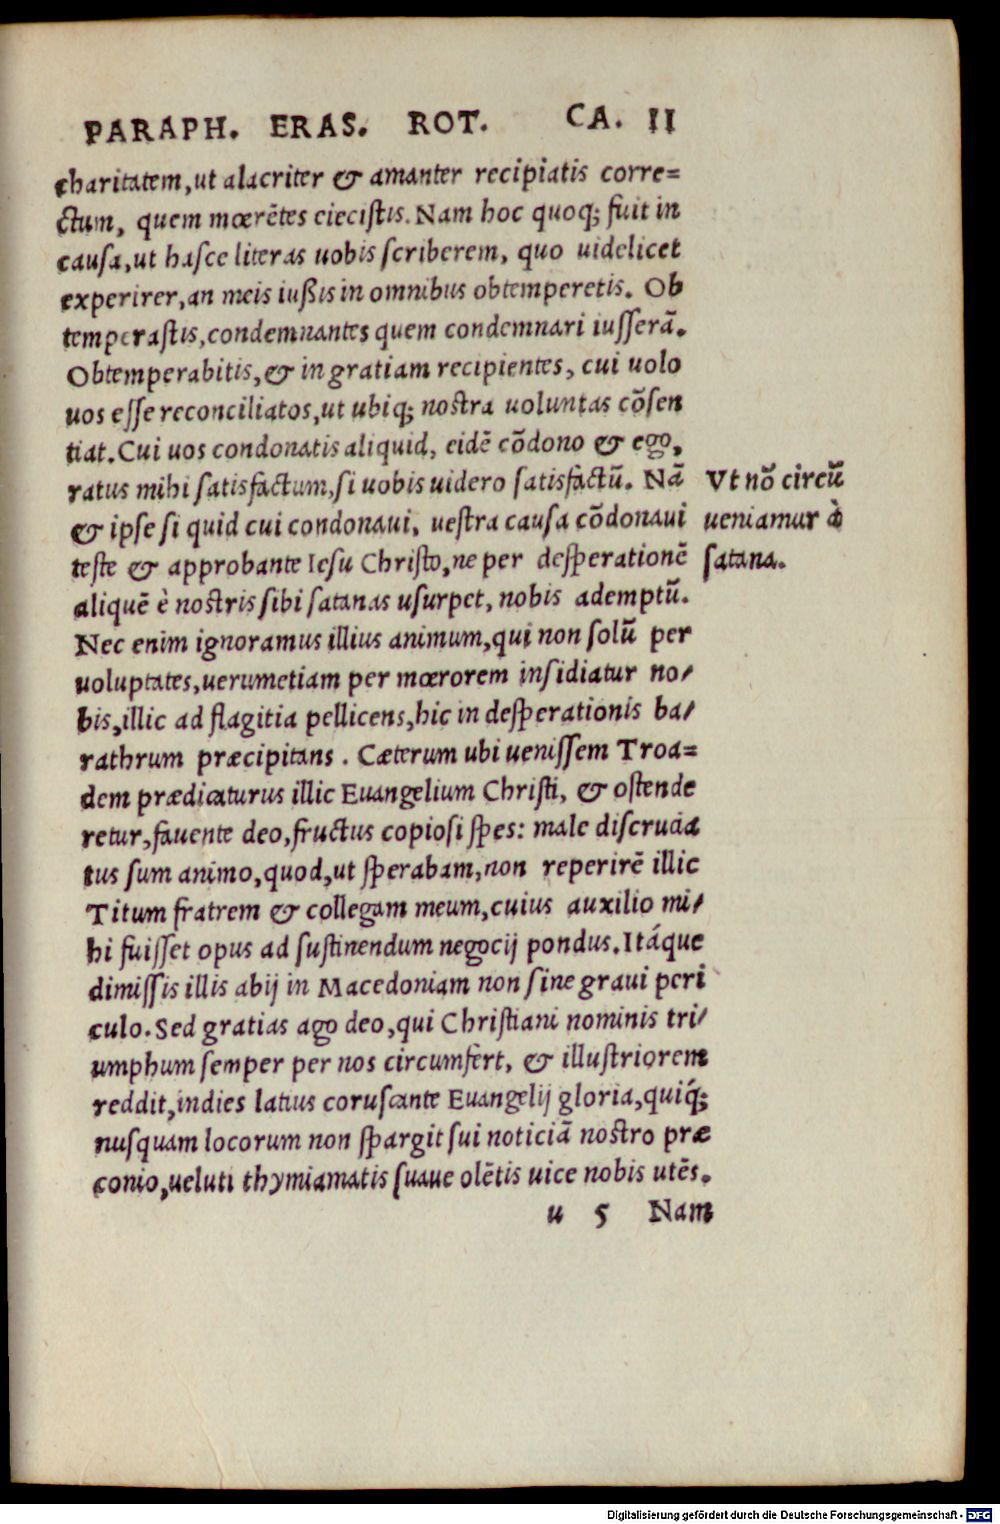 PARAPH. ERAS. ROT. CA. II
charitatem, ut alacriter & amanter recipiatis corre=
ctum, quem mœrētes eiecistis. Nam hoc quoq; fuit in
causa, ut hasce literas uobis scriberem, quo uidelicet
experirer, an meis iußis in omnibus obtemperetis. Ob
temperastis, condemnantes quem condemnari iusserā.
Obtemperabitis, & in gratiam recipientes, cui uolo
uos esse reconciliatos, ut ubiq; nostra uoluntas cōsen
tiat. Cui uos condonatis aliquid, eidē cōdono & ego,
ratus mihi satisfactum, si uobis uidero satisfactū. Nā
& ipse si quid cui condonaui, uestra causa cōdonaui
teste & approbante Iesu Christo, ne per desperationē
aliquē è nostris sibi satanas usurpet, nobis ademptū.
Nec enim ignoramus illius animum, qui non solū per
uoluptates, uerumetiam per mœrorem insidiatur no/
bis, illic ad flagitia pellicens, hic in desperationis ba/
rathrum præcipitans. Cæterum ubi uenissem Troa=
dem prædicaturus illic Euangelium Christi, & ostende
retur, fauente deo, fructus copiosi spes: male discrucia
tus sum animo, quod, ut sperabam, non reperirē illic
Titum fratrem & collegam meum, cuius auxilio mi/
hi fuisset opus ad sustinendum negocij pondus. Itáque
dimissis illis abij in Macedoniam non sine graui peri
culo. Sed gratias ago deo, qui Christiani nominis tri/
umphum semper per nos circumfert, & illustriorem
reddit, indies latius coruscante Euangelij gloria, quiq́;
nusquam locorum non spargit sui noticiā nostro præ
conio, ueluti thymiamatis suaue olētis uice nobis utēs.
u 5 Nam
Vt nō circū
ueniamur à
satana.
Digitalisierung gefördert durch die Deutsche Forschungsgemeinschaft - DFG